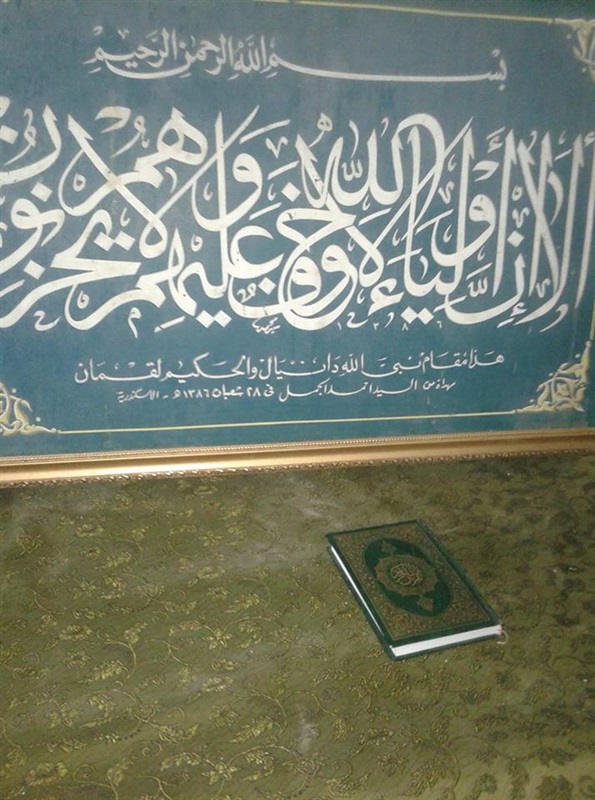 بسم الله الرحمن الرحيم
ألا إن أولياء الله لا خوف عليهم ولا هم يحزنون
١٣٨٦
هذا مقام نبى الله دانيال والحكيم لقمان
مهداه من السيد احمد الجمل فى ٢٨ شعبان ١٣٨٦هـ - الاسكندرية